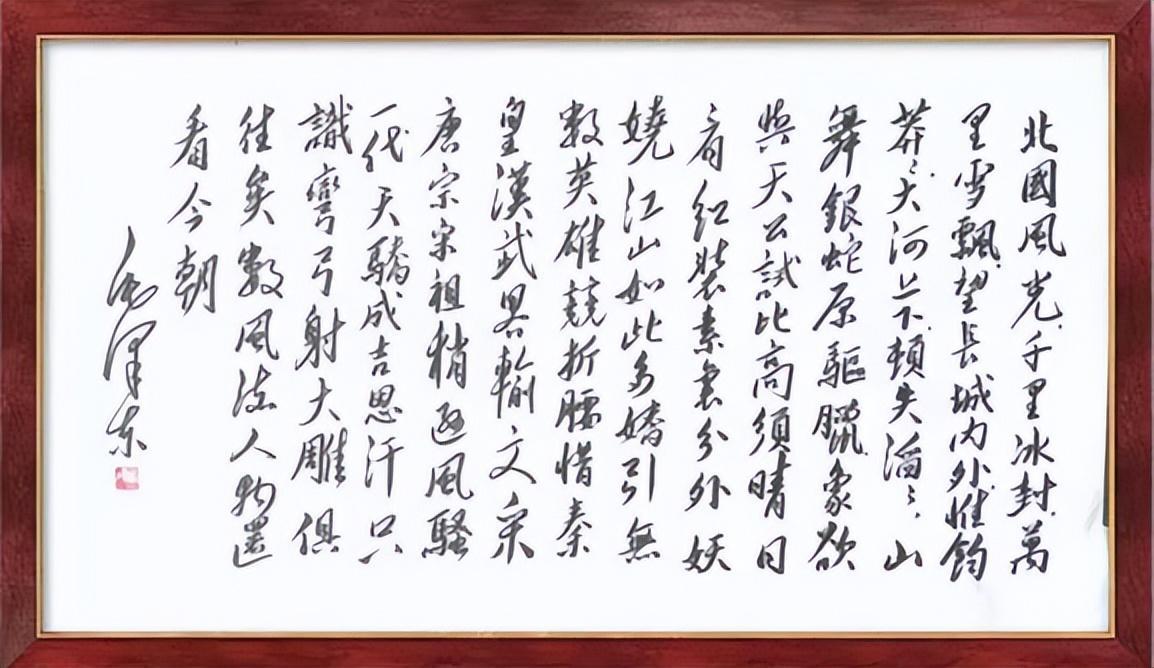 北國風光千里冰封萬
里雪飄望長城内外惟鈞
莽〻大河上下頓失滔〻山
舞銀蛇原驅臘象欲
與天公試比高須晴日
看紅裝素裹分外妖
嬈江山如此多嬌引無
數英雄競折腰惜秦
皇漢武畧輸文采
唐宗宋祖稍遜風騷
一代天驕成吉思汗只
識彎弓射大雕俱
往矣數風流人物還
看今朝
毛澤东